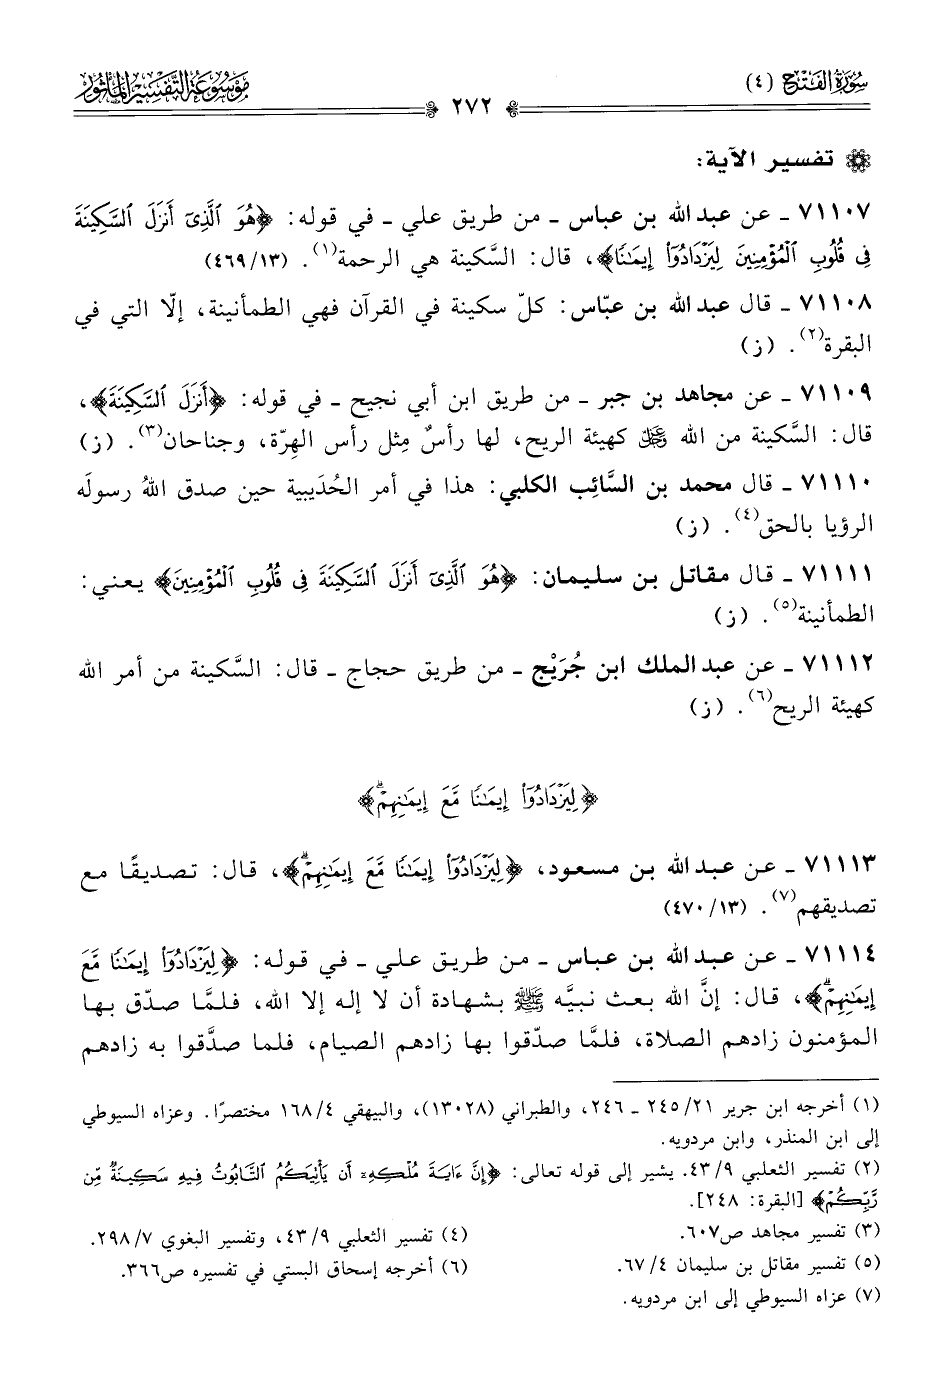 سُورَةُ الفَتْحِ (٤)
٢٧٢
مَوْسُوعَةُ التَّفْسِيرِ المَأْثُور
تفسير الآية:
٧١١٠٧ ـ عن عبد الله بن عباس ـ من طريق علي ـ في قوله: ﴿هُوَ ٱلَّذِىٓ أَنزَلَ ٱلسَّكِينَةَ
فِى قُلُوبِ ٱلْمُؤْمِنِينَ لِيَزْدَادُوٓا۟ إِيمَـٰنًا﴾، قال: السَّكينة هي الرحمة(١). (٤٦٩/١٣)
٧١١٠٨ ـ قال عبد الله بن عبّاس: كلّ سكينة في القرآن فهي الطمأنينة، إلّا التي في
البقرة(٢). (ز)
٧١١٠٩ ـ عن مجاهد بن جبر ـ من طريق ابن أبي نجيح ـ في قوله: ﴿أَنزَلَ ٱلسَّكِينَةَ﴾،
قال: السَّكينة من الله ﷿ كهيئة الريح، لها رأسٌ مِثل رأس الهِرّة، وجناحان(٣). (ز)
٧١١١٠ ـ قال محمد بن السَّائِب الكلبي: هذا في أمر الحُدَيبية حين صدق اللهُ رسولَه
الرؤيا بالحق(٤). (ز)
٧١١١١ ـ قال مقاتل بن سليمان: ﴿هُوَ ٱلَّذِىٓ أَنزَلَ ٱلسَّكِينَةَ فِى قُلُوبِ ٱلْمُؤْمِنِينَ﴾ يعني:
الطمأنينة(٥). (ز)
٧١١١٢ ـ عن عبد الملك ابن جُرَيْج ـ من طريق حجاج ـ قال: السَّكينة من أمر الله
كهيئة الريح(٦). (ز)
﴿لِيَزْدَادُوٓا۟ إِيمَـٰنًا مَّعَ إِيمَـٰنِهِمْ ۗ﴾
٧١١١٣ ـ عن عبد الله بن مسعود، ﴿لِيَزْدَادُوٓا۟ إِيمَـٰنًا مَّعَ إِيمَـٰنِهِمْ ۗ﴾، قال: تصديقًا مع
تصديقهم(٧). (٤٧٠/١٣)
٧١١١٤ ـ عن عبد الله بن عباس ـ من طريق علي ـ في قوله: ﴿لِيَزْدَادُوٓا۟ إِيمَـٰنًا مَّعَ
إِيمَـٰنِهِمْ ۗ﴾، قال: إنَّ الله بعث نبيَّه ﷺ بشهادة أن لا إله إلا الله، فلمَّا صدّق بها
المؤمنون زادهم الصلاة، فلمَّا صدّقوا بها زادهم الصيام، فلما صدَّقوا به زادهم
(١) أخرجه ابن جرير ٢١/ ٢٤٥ ـ ٢٤٦، والطبراني (١٣٠٢٨)، والبيهقي ٤/ ١٦٨ مختصرًا. وعزاه السيوطي
إلى ابن المنذر، وابن مردويه.
(٢) تفسير الثعلبي ٩/ ٤٣. يشير إلى قوله تعالى: ﴿إِنَّ ءَايَةَ مُلْكِهِۦٓ أَن يَأْتِيَكُمُ ٱلتَّابُوتُ فِيهِ سَكِينَةٌ مِّن
رَّبِّكُمْ﴾ [البقرة: ٢٤٨].
(٣) تفسير مجاهد ص٦٠٧.
(٤) تفسير الثعلبي ٩/ ٤٣، وتفسير البغوي ٧/ ٢٩٨.
(٥) تفسير مقاتل بن سليمان ٤/ ٦٧.
(٦) أخرجه إسحاق البستي في تفسيره ص٣٦٦.
(٧) عزاه السيوطي إلى ابن مردويه.